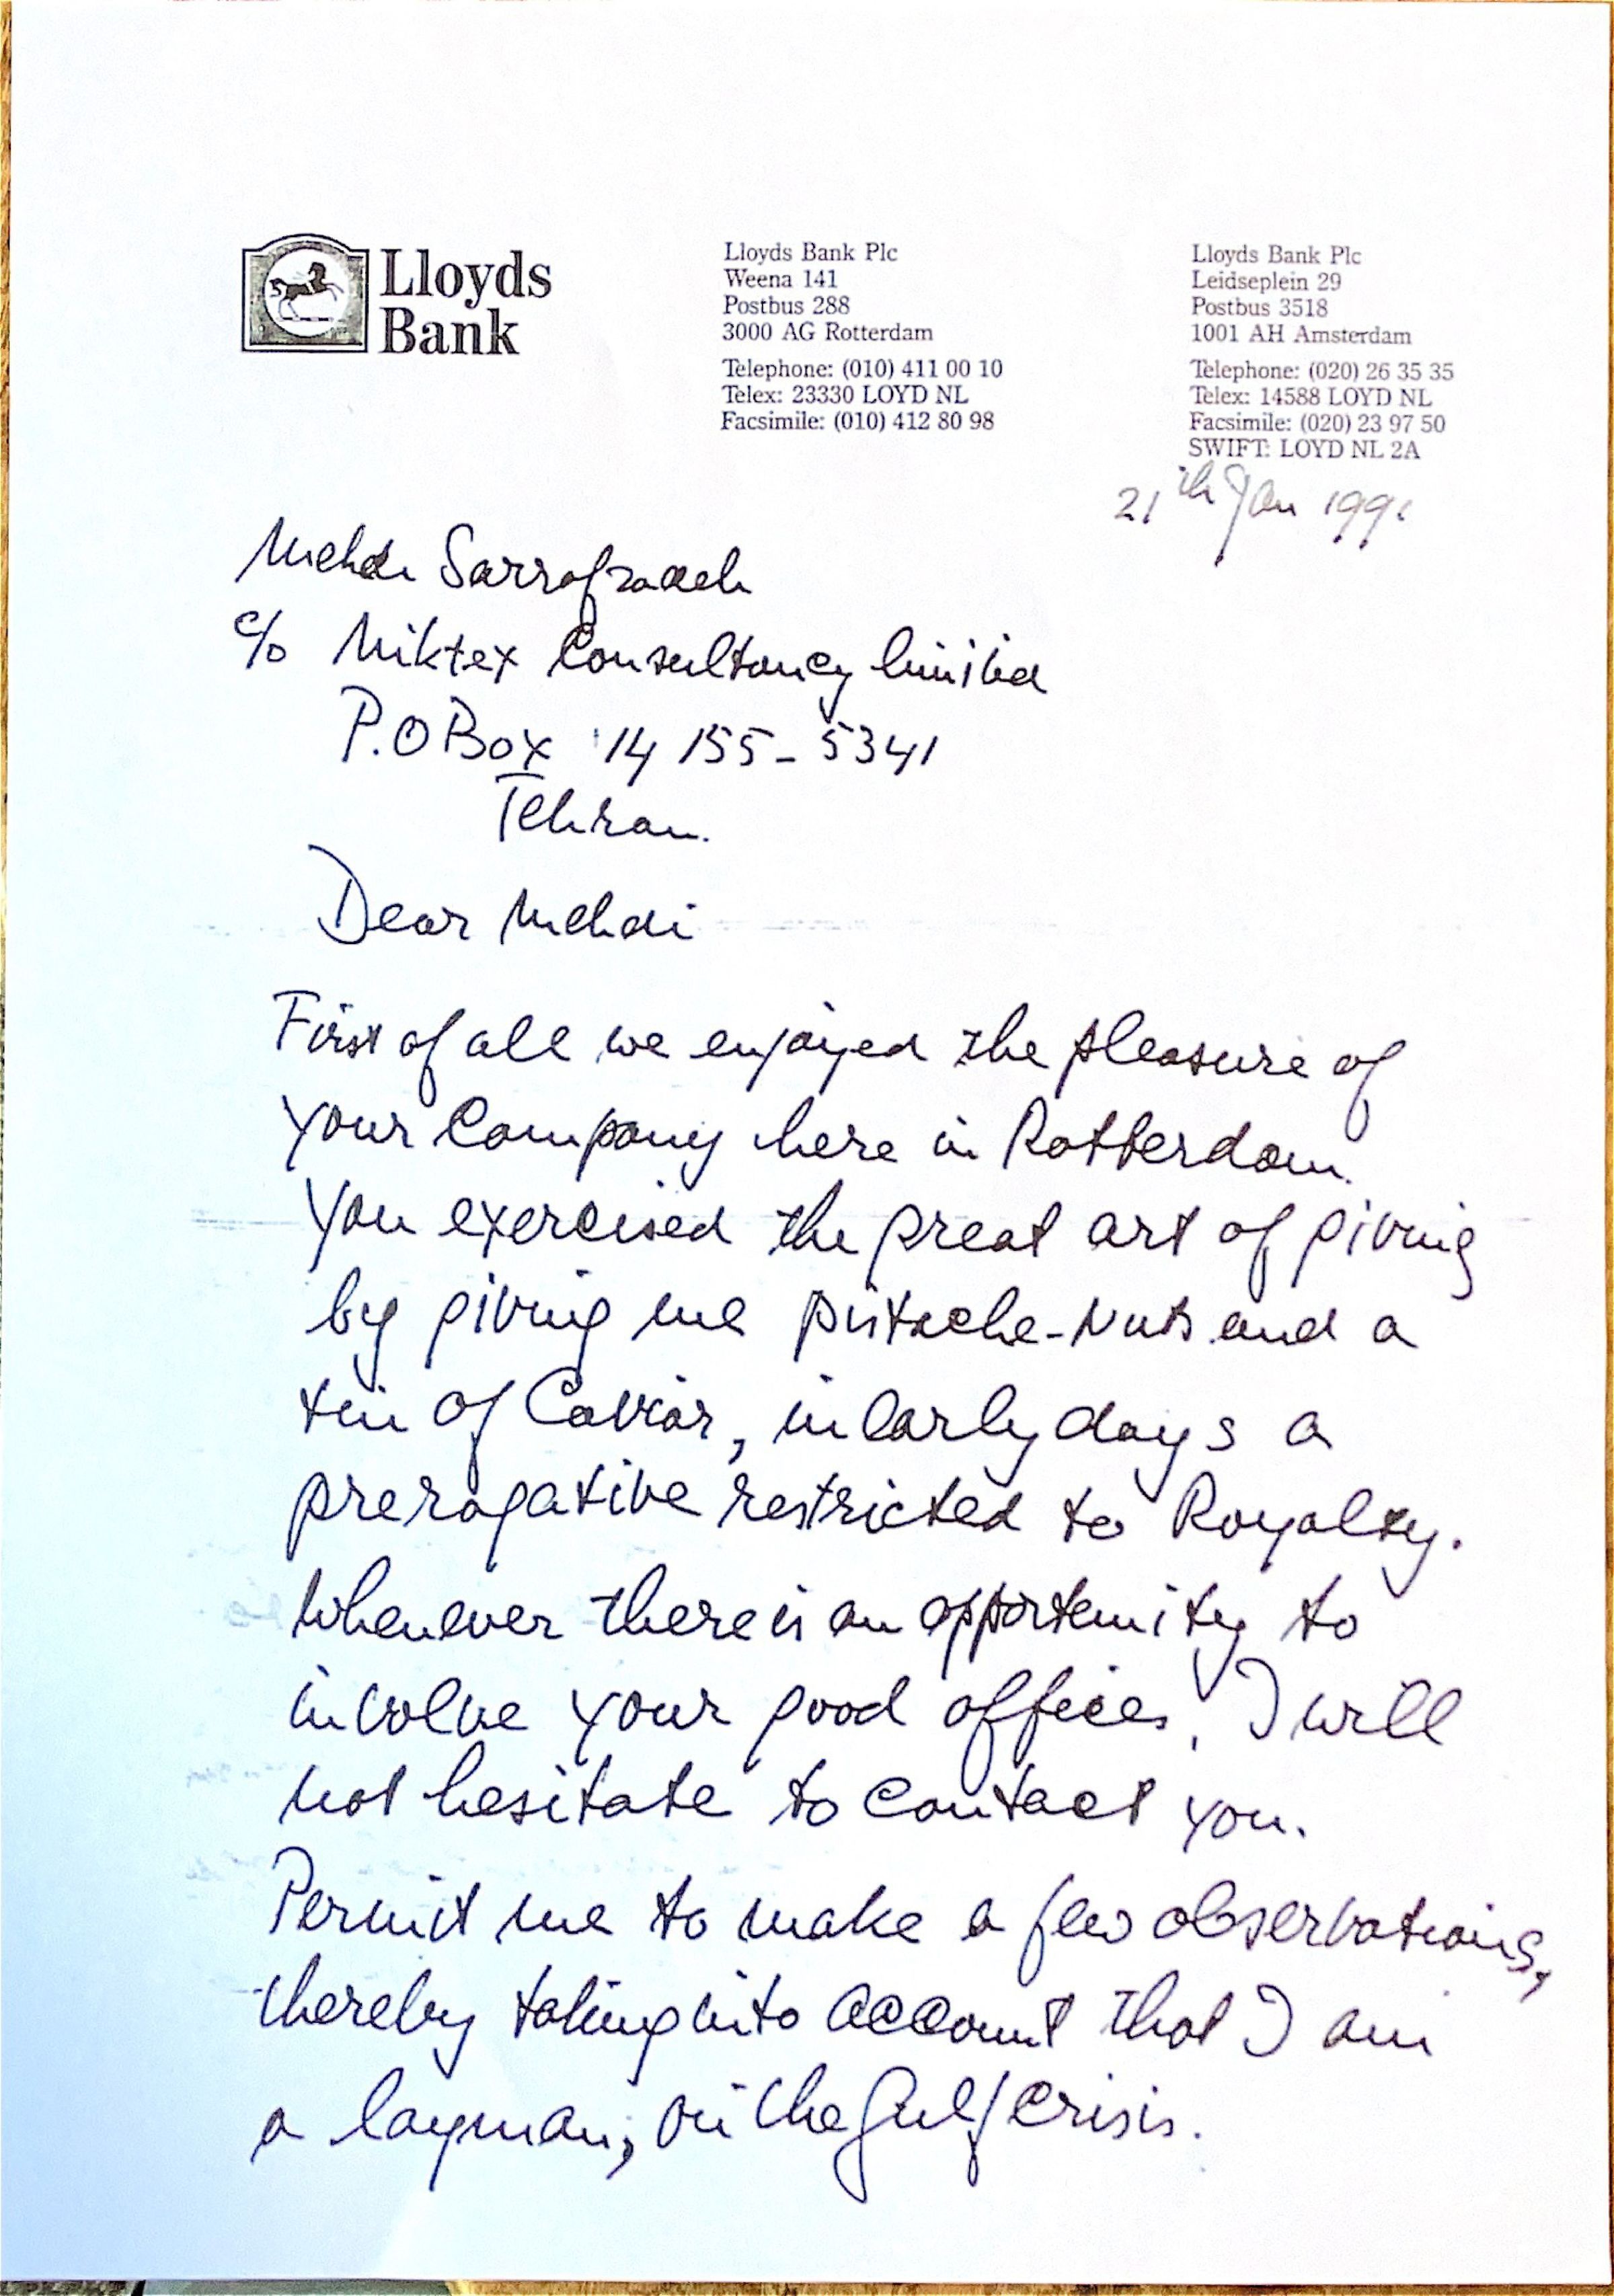 Lloyds
Bank
Lloyds Bank Plc
Weena 141
Postbus 288
3000 AG Rotterdam
Telephone: (010) 411 00 10
Telex: 23330 LOYD NL
Facsimile: (010) 412 80 98
Lloyds Bank Plc
Leidseplein 29
Postbus 3518
1001 AH Amsterdam
Telephone: (020) 26 35 35
Telex: 14588 LOYD NL
Facsimile: (020) 23 97 50
SWIFT: LOYD NL 2A
21th Jan 1991
Mehdi Sarrafzadeh
c/o Miktex Consultancy limited
P.O Box 14 155-5341
Tehran.
Dear Mehdi
First of all we enjoyed the pleasure of
your Company here in Rotterdam.
You exercised the great art of giving
by giving me pistache-Nuts and a
tin of Caviar, in early days a
prerogative restricted to Royalty.
Whenever there is an opportunity to
involve your good offices, I will
not hesitate to contact you.
Permit me to make a few observations,
thereby taking into account that I am
a layman; on the Gulf Crisis.